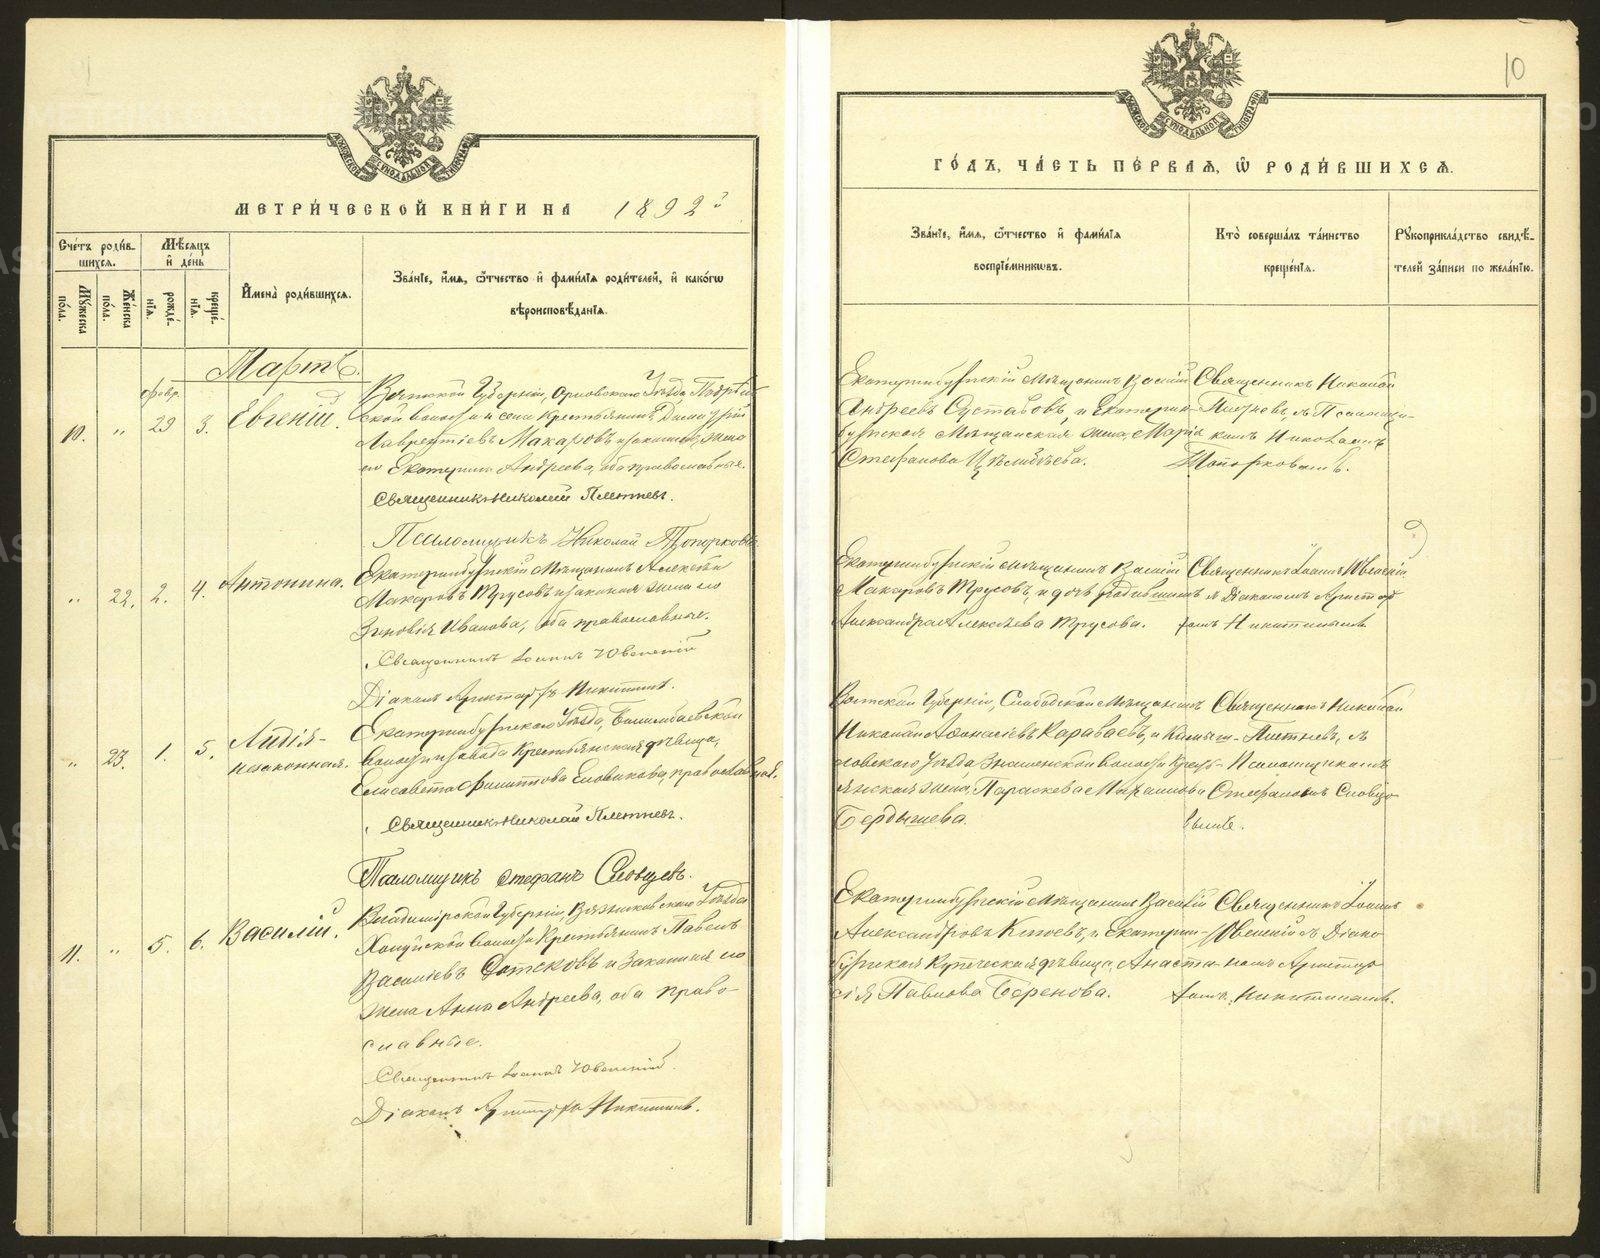 МЕТРИ́ЧЕСКОЙ КНИ́ГИ НА 1892 г.
Сче́тъ роди́вшихся.
Му́жеска по́ла.
Же́нска по́ла.
Мѣ́сяцъ и҆ де́нь
рожде́нїѧ.
креще́нїѧ.
И҆мена̀ роди́вшихсѧ.
Зва́нїе, и҆́мѧ, ѻ҆́тчество и҆ фами́лїѧ роди́телей, и҆ како́гѡ
вѣроисповѣ́данїѧ.
Мартъ.
февр.
10. " 29 3. Евгеній.
Вятской Губерніи, Орловскаго Уѣзда,
ской волости и села Крестьянинъ
Лаврентіевъ Макаровъ и законная жена
его Екатерина Андреева, оба православные.
Священникъ Николай Плетневъ.
Псаломщикъ Николай Топорковъ.
" 22. 2. 4. Антонина.
Екатеринбургскій Мѣщанинъ Алексѣй
Макаровъ Трусовъ и законная жена его
Зиновія Иванова, оба православные.
Священникъ Іоаннъ
Діаконъ Аристархъ Никитинъ.
" 23. 1. 5. Лидія-
незаконная.
Екатеринбургскаго Уѣзда, Билимбаевской
волости и завода Крестьянская дѣвица,
Елисавета Филиппова Еловикова, православной.
Священникъ Николай Плетневъ.
Псаломщикъ Стефанъ Словцевъ.
11. " 5. 6. Василій.
Владимірской Губерніи, Вязниковскаго Уѣзда
Холуйской волости Крестьянинъ Павелъ
Василіевъ и законная его
жена Анна Андреева, оба право-
славные.
Священникъ Іоаннъ
Діаконъ Аристархъ Никитинъ.
10
ГО́ДЪ, ЧА́СТЬ ПЕ́РВАѦ, Ѡ҆ РОДИ́ВШИХСѦ.
Зва́нїе, и҆́мѧ, ѻ҆́тчество и҆ фами́лїѧ
воспрїе́мникѡвъ.
Кто̀ соверша́лъ та́инство
креще́нїѧ.
Рꙋкоприкла́дство свидѣ́-
телей за́писи по жела́нїю.
Екатеринбургскій Мѣщанинъ Василій
Андреевъ Суставовъ, и Екатерин-
бургская Мѣщанская жена, Марія
Стефанова
Священникъ Николай
Плетневъ, съ Псаломщи-
комъ Николаемъ
Топорковымъ.
Екатеринбургскій Мѣщанинъ Василій
Макаровъ Трусовъ, и дочь родившихъ
Александра Алексѣева Трусова.
Священникъ Іоаннъ
съ Діакономъ Аристар-
хомъ Никитинымъ.
Вятской Губерніи, Слободской Мѣщанинъ
Николай Афанасіевъ Караваевъ, и Камыш-
ловскаго Уѣзда Знаменской волости Кресть-
янская жена, Параскева
Бердышева.
Священникъ Николай
Плетневъ, съ
Псаломщикомъ
Стефаномъ Словцо-
вымъ.
Екатеринбургскій Мѣщанинъ Василій
Александровъ и Екатерин-
бургская Купеческая дѣвица, Анаста-
сія Павлова
Священникъ Іоаннъ
съ Діако-
номъ Аристар-
хомъ, Никитинымъ.